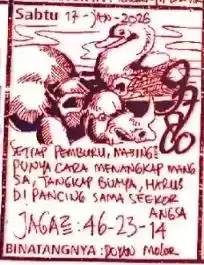 Sabtu 17-JAN-2026
SETIAP PEMBURU, MASING²
PUNYA CARA MENANGKAP MANG
SA, TANGKAP BUAYA, HARUS
DI PANCING SAMA SEEKOR
ANGSA
JAGA²: 46-23-14
BINATANGNYA : DOYAN MOLOR